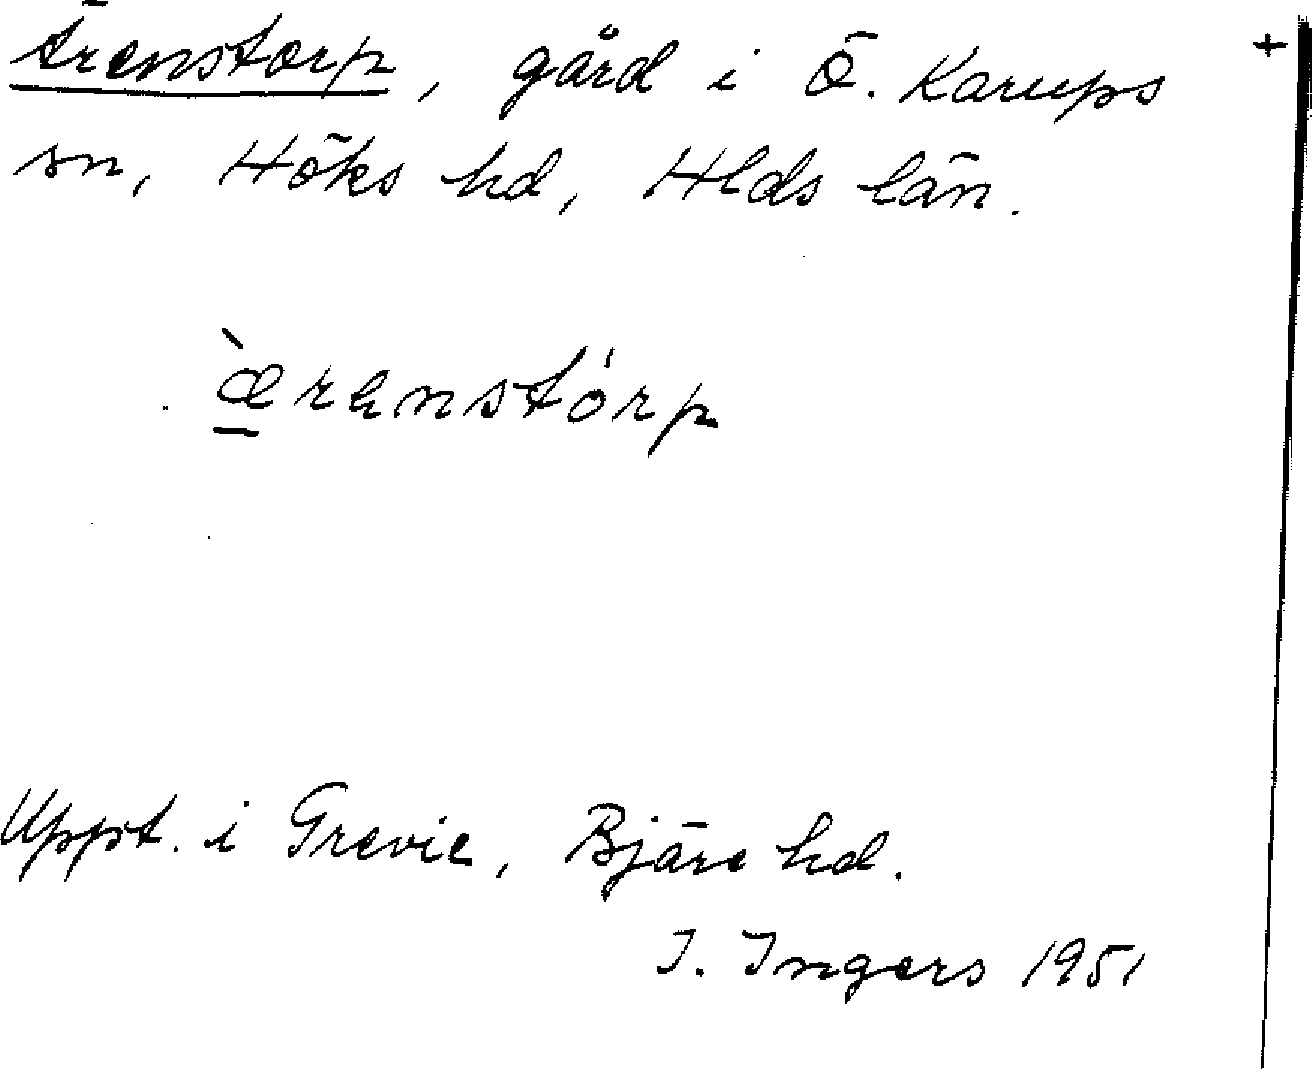 Ärenstorp, gård i Ö. Karups +
sn, Höks hd, Hlds län.
æ̀renstórp
Uppt. i Grevie, Bjäre hd.
I. Ingers 1951